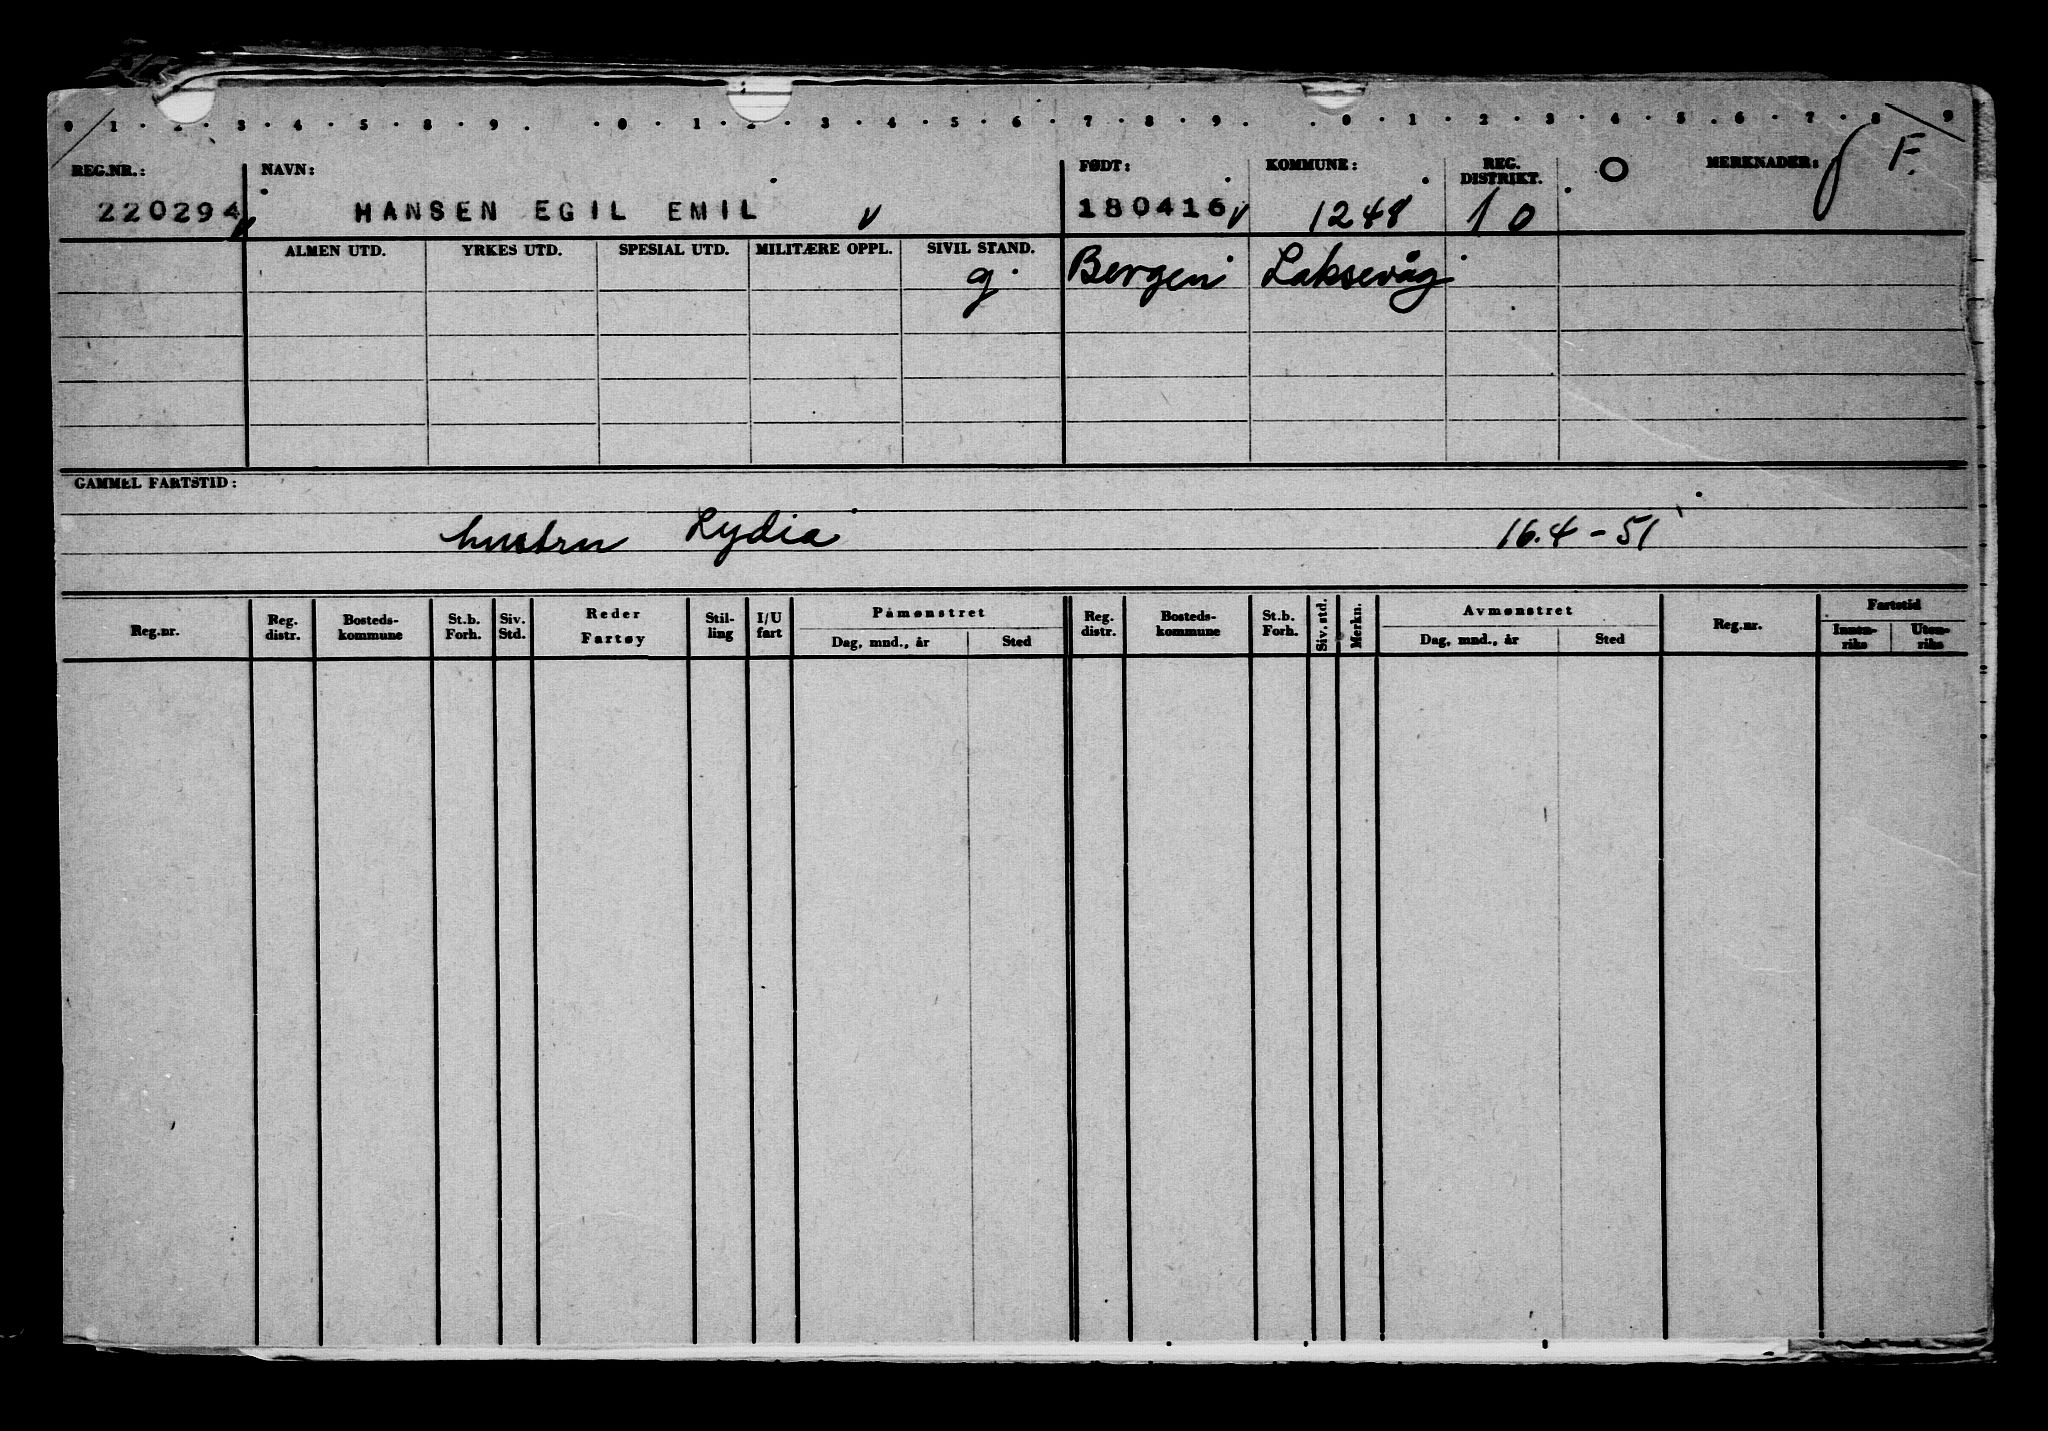 0 1 2 3 4 5 8 9 0 1 2 3 4 5 6 7 8 9 0 1 2 3 4 5 6 7 8 9
REG.NR.: NAVN: FØDT: KOMMUNE: REG. DISTRIKT. O MERKNADER: F.
220294 HANSEN EGIL EMIL 180416 1248 10
ALMEN UTD. YRKES UTD. SPESIAL UTD. MILITÆRE OPPL. SIVIL STAND.
g Bergen Laksevåg
GAMMEL FARTSTID:
hustru Lydia 16.4-51
Reg.nr. Reg. distr. Bosteds-kommune St.b. Forh. Siv. Std. Reder Fartøy Stil-ling I/U fart Påmønstret Reg. distr. Bosteds-kommune St.b. Forh. Siv. std. Merkn. Avmønstret Reg.nr. Fartstid
Dag, mnd., år Sted Dag, mnd., år Sted Innen-riks Uten-riks